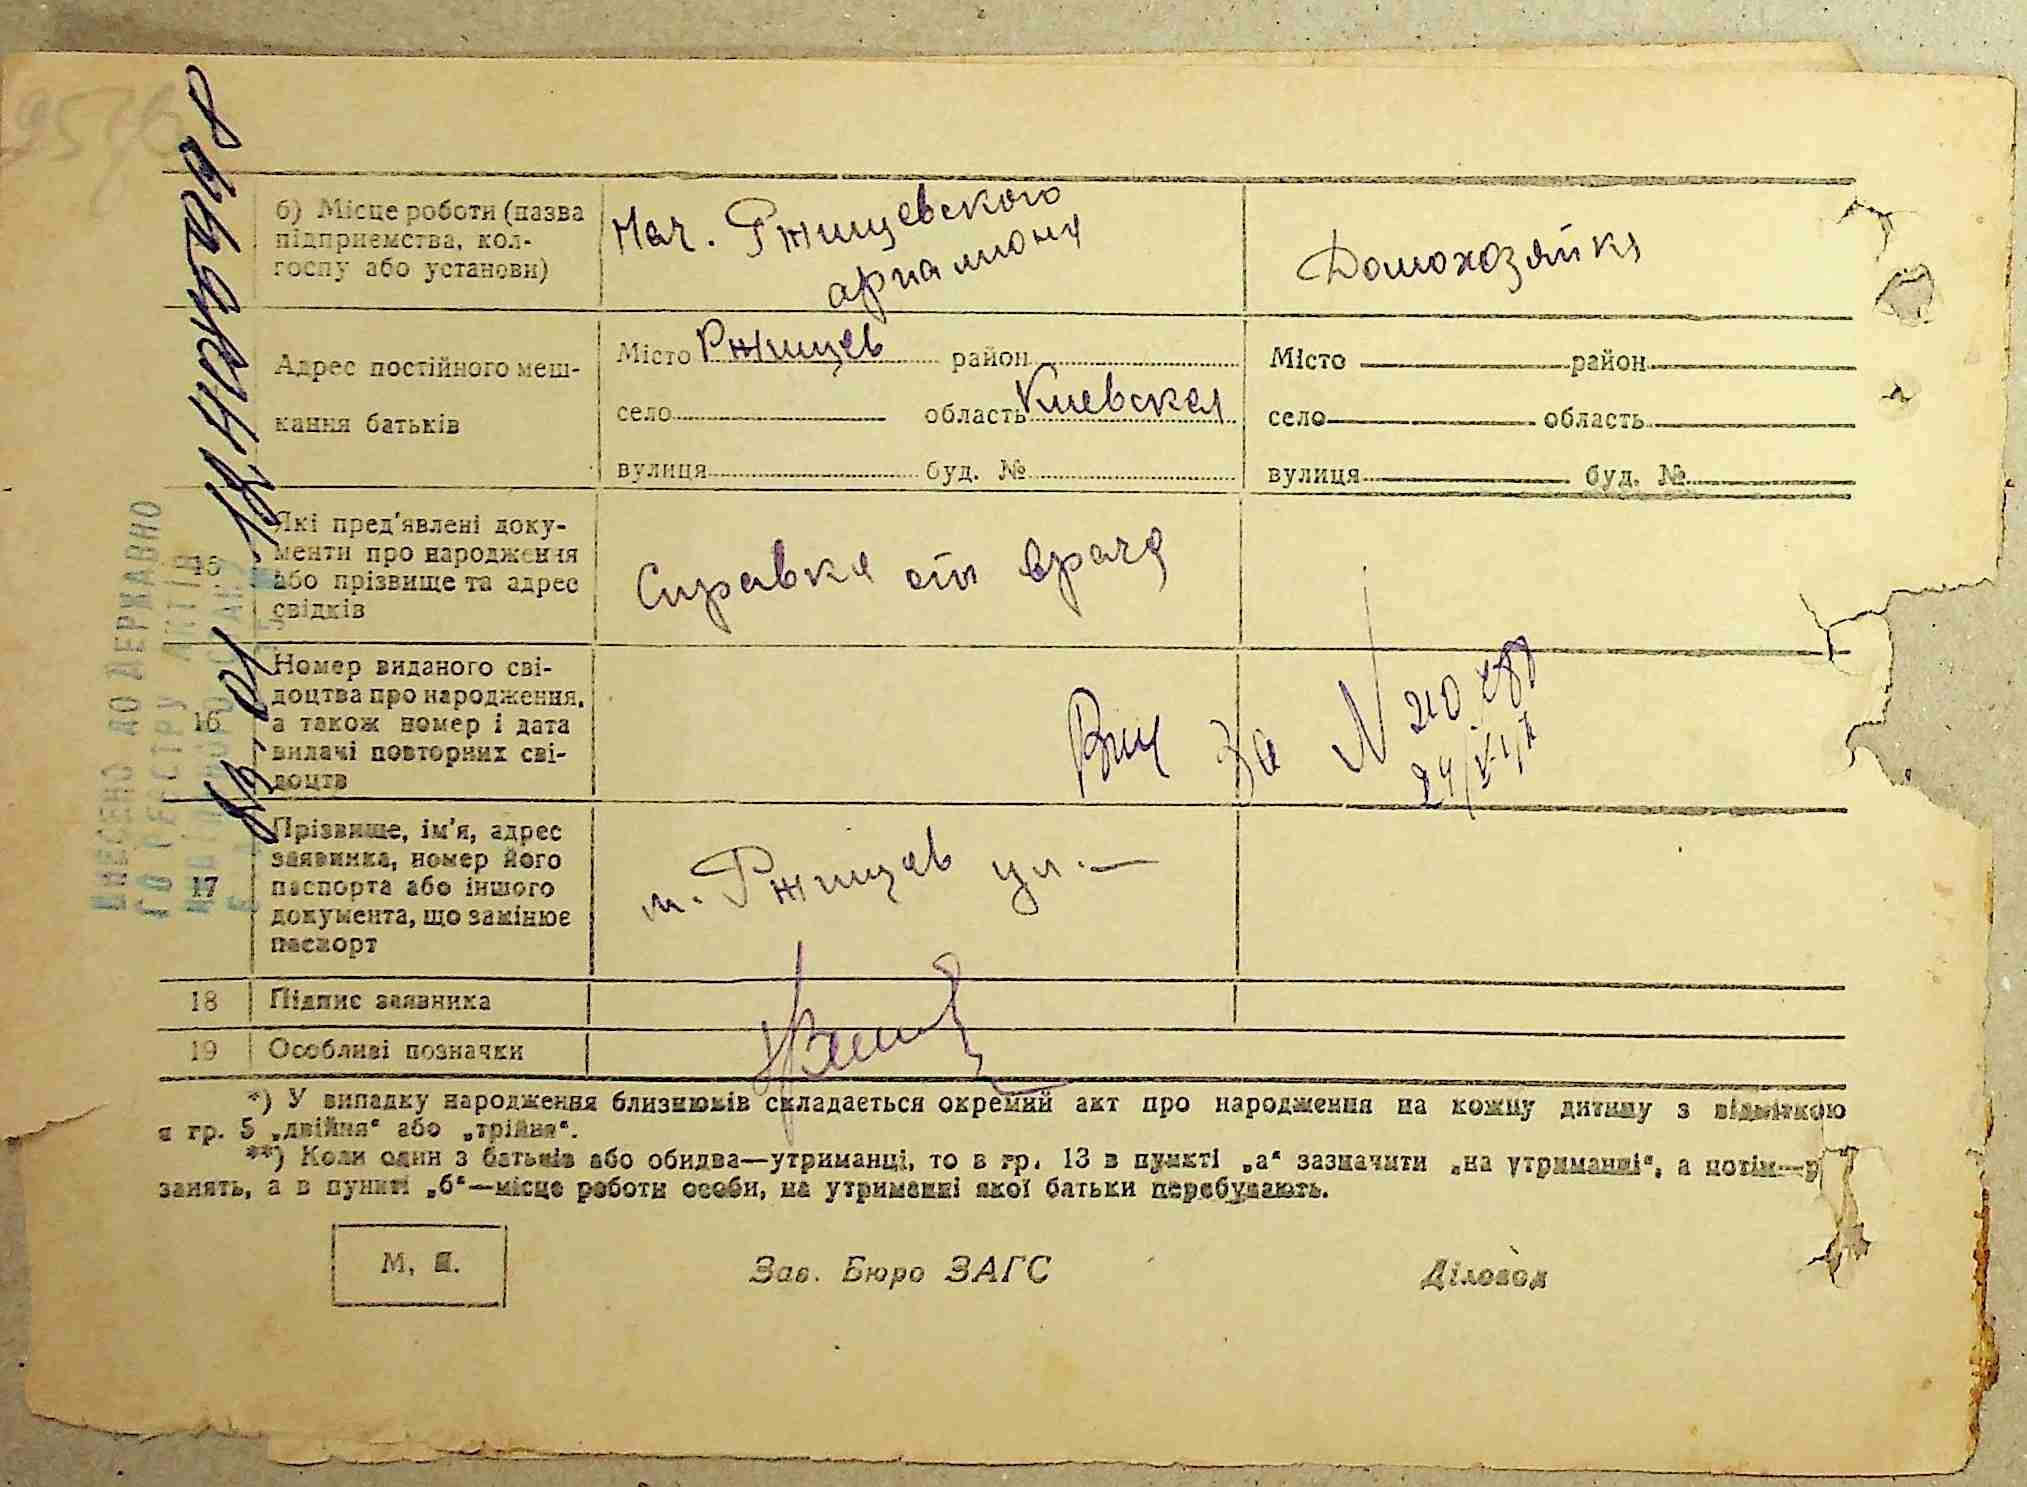 б) Місце роботи (назва
підприємства, кол-
госпу або установи)
Нач. Ржищевского
Домохозяйка
Адрес постійного меш-
кання батьків
Місто Ржищев район
село область Киевская
вулиця буд. №
Місто район
село область
вулиця буд. №
15
Які пред'явлені доку-
менти про народження
або прізвище та адрес
свідків
Справка от врача
16
Номер виданого сві-
доцтва про народження,
а також номер і дата
видачі повторних сві-
доцтв
за N 210
17
Прізвище, ім'я, адрес
заявника, номер його
паспорта або іншого
документа, що замінює
паспорт
м. Ржищев ул. —
18 Підпис заявника
19 Особливі позначки
*) У випадку народження близнюків складається окремий акт про народження на кожну дитину з відміткою
в гр. 5 „двійня“ або „трійня“.
**) Коли один з батьків або обидва—утриманці, то в гр. 13 в пункті „а“ зазначити „на утриманні“, а потім—р
занять, а в пункті „б“—місце роботи особи, на утриманні якої батьки перебувають.
М. П.
Зав. Бюро ЗАГС
Діловод
ВНЕСЕНО ДО ДЕРЖАВНО
ГО РЕЄСТРУ АКТІВ